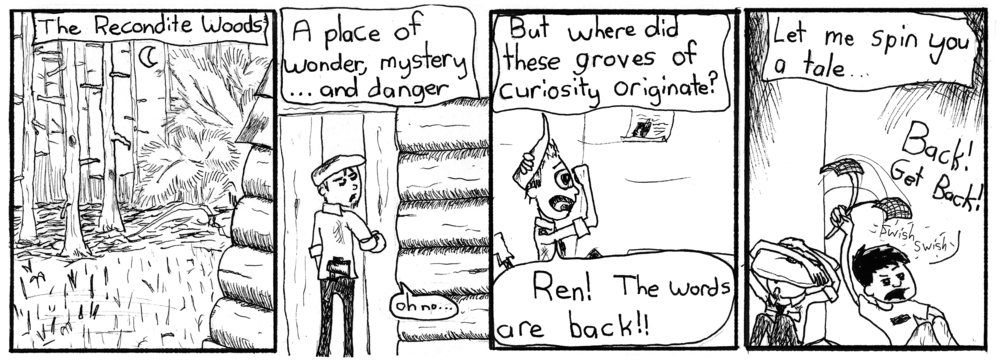 The Recondite Woods
A place of
wonder, mystery
... and danger
oh no...
But where did
these groves of
curiosity originate?
Ren! The words
are back!!
Let me spin you
a tale...
Back!
Get Back!
Swish
Swish